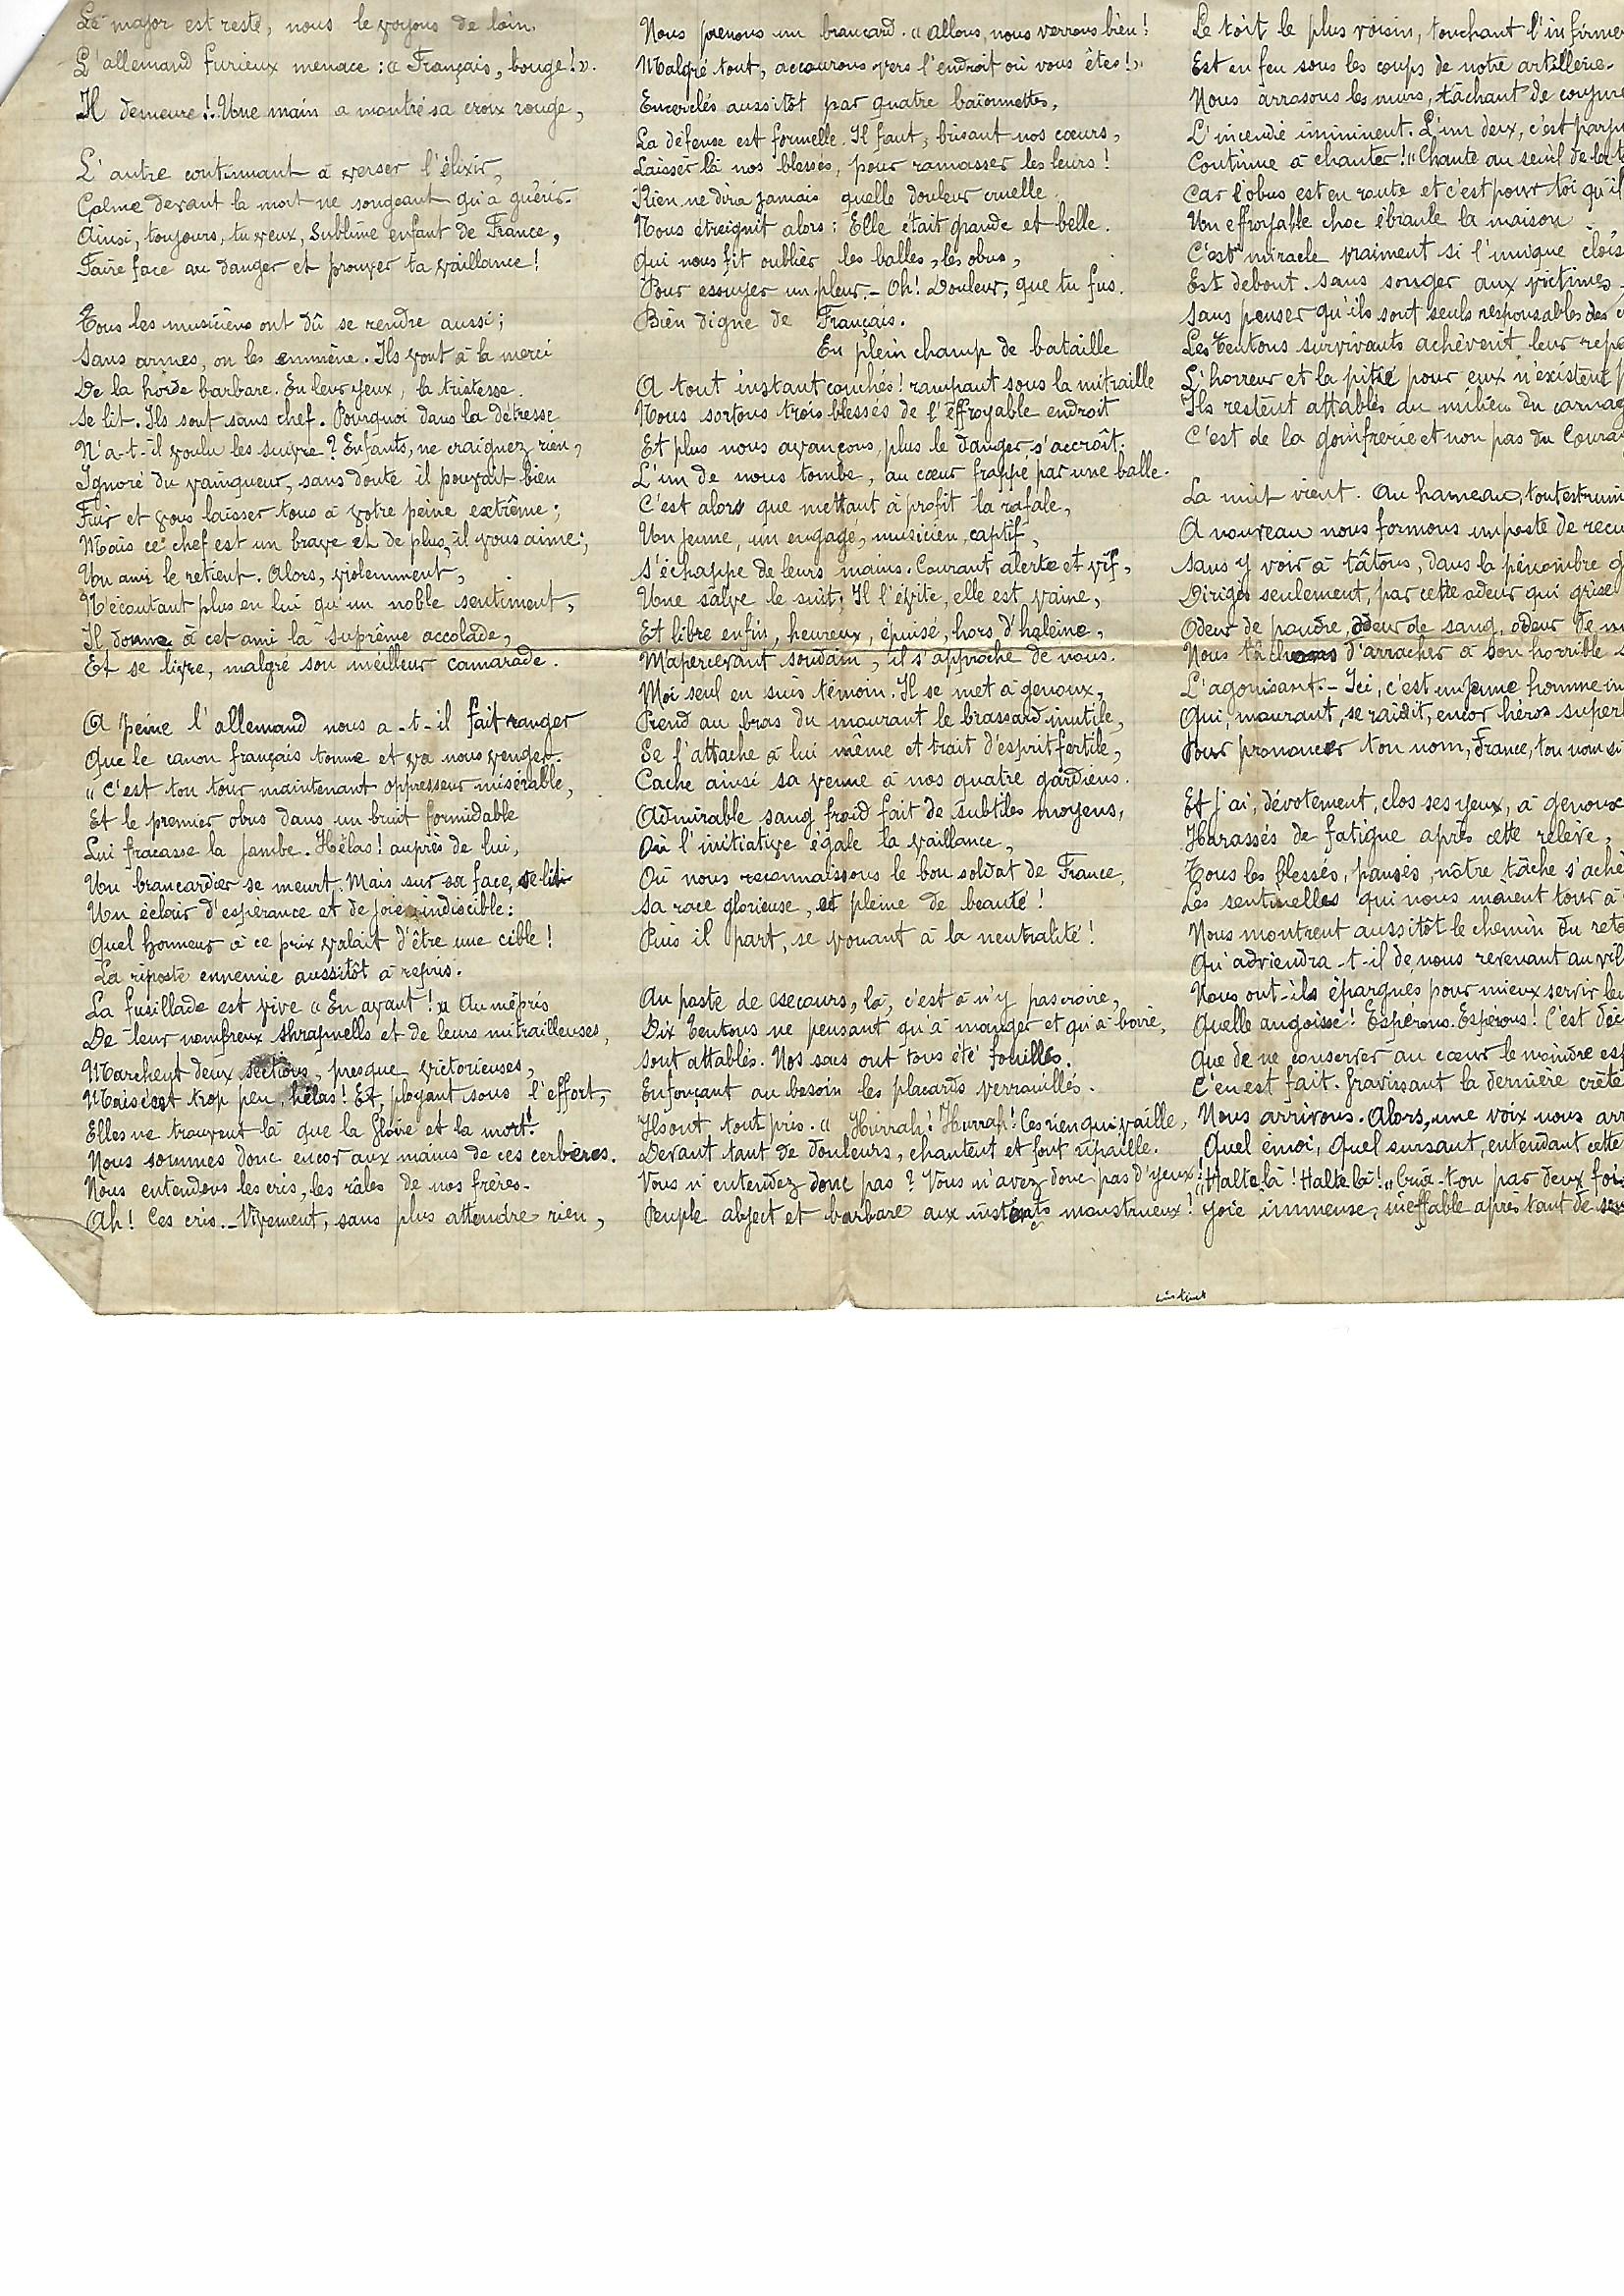 Le major est resté, nous le voyons de loin.
L'allemand furieux menace : « Français, bouge ! ».
Il demeure !. Une main a montré sa croix rouge,
L'autre continuant à verser l'élixir,
Calme devant la mort ne songeant qu'à guérir.
Ainsi, toujours, tu veux, Sublime enfant de France,
Faire face au danger et prouver ta vaillance !
Tous les musiciens ont dû se rendre aussi ;
Sans armes, on les emmène. Ils vont à la merci
De la horde barbare. En leur yeux, la tristesse
Se lit. Ils sont sans chef. Pourquoi dans la détresse
N'a-t-il voulu les suivre ? Enfants, ne craignez rien,
Ignoré du vainqueur, sans doute il pouvait bien
Fuir et vous laisser tous à votre peine extrême ;
Mais ce chef est un brave et de plus, il vous aime ;
Un ami le retient. Alors, violemment,
N'écoutant plus en lui qu'un noble sentiment,
Il donne à cet ami la suprême accolade,
Et se livre, malgré son meilleur camarade.
A peine l'allemand nous a-t-il fait ranger
Que le canon français tonne et va nous venger.
« C'est ton tour maintenant oppresseur misérable,
Et le premier obus dans un bruit formidable
Lui fracasse la jambe. Hélas ! auprès de lui,
Un brancardier se meurt. Mais sur sa face,
Un éclair d'espérance et de joie indiscible :
Quel honneur à ce prix valait d'être une cible !
La riposte ennemie aussitôt a repris.
La fusillade est vive « En avant ! » Au mépris
De leur nombreux shrapnells et de leurs mitrailleuses,
Marchent deux sections, presque victorieuses,
Mais c'est trop peu, hélas ! Et, ployant sous l'effort,
Elles ne trouvent là que la Gloire et la mort !
Nous sommes donc encor aux mains de ces cerbères.
Nous entendons les cris, les râles de nos frères.
Ah ! Ces cris.. Vivement, sans plus attendre rien,
Nous prenons un brancard. « Allons, nous verrons bien !
Malgré tout, accourons vers l'endroit où vous êtes ! »
Encerclés aussitôt par quatre baïonnettes,
La défense est formelle. Il faut, brisant nos cœurs,
Laisser là nos blessés, pour ramasser les leurs !
Rien ne dira jamais quelle douleur cruelle
Nous étreignit alors : Elle était grande et belle.
Qui nous fit oublier les balles, les obus,
Pour essuyer un pleur. - Oh ! Douleur, que tu fus.
Bien digne de Français.
En plein champ de bataille
A tout instant couchés ! rampant sous la mitraille
Nous sortons trois blessés de l'effroyable endroit
Et plus nous avançons, plus le danger s'accroît.
L'un de nous tombe, au cœur frappé par une balle.
C'est alors que mettant à profit la rafale,
Un jeune, un engagé, musicien, captif,
S'échappe de leurs mains. Courant alerte et vif,
Une salve le suit ; Il l'évite, elle est vaine,
Et libre enfin, heureux, épuisé, hors d'haleine,
M'apercevant soudain, il s'approche de nous.
Moi seul en suis témoin. Il se met à genoux,
Prend au bras du mourant le brassard inutile,
Se l'attache à lui même et trait d'esprit fertile,
Cache ainsi sa venue à nos quatre gardiens.
Admirable sang froid fait de subtiles moyens,
Où l'initiative égale la vaillance,
Où nous reconnaissons le bon soldat de France,
Sa race glorieuse, et pleine de beauté !
Puis il part, se vouant à la neutralité !
Au poste de secours, là, c'est à n'y pas croire,
Dix Teutons ne pensant qu'à manger et qu'à boire,
Sont attablés. Nos sacs ont tous été fouillés.
Enfonçant au besoin les placards verrouillés.
Ils ont tout pris. « Hurrah ! Hurrah ! Ces rien qui vaille,
Devant tant de douleurs, chantent et font ripaille.
Vous n'entendez donc pas ? Vous n'avez donc pas d'yeux !
Peuple abject et barbare aux instincts monstrueux !
Le toit le plus voisin, touchant l'infirme
Est en feu sous les coups de notre artillerie.
Nous arrosons les murs, tâchant de conjure
L'incendie imminent. L'un deux, c'est
Continue à chanter ! « Chante au seuil de la
Car l'obus est en route et c'est pour toi qu'il
Un effroyable choc ébranle la maison
C'est miracle vraiment si l'unique clois
Est debout. Sans songer aux victimes
Sans penser qu'ils sont seuls responsables des
Les Teutons survivants achèvent leur repa
L'horreur et la pitié pour eux n'existent
Ils restent attablés au milieu du carnag
C'est de la goinfrerie et non pas du Coura
La nuit vient. Au hameau, tout est ruin
A nouveau nous formons un poste de
Sans y voir à tâtons, dans la pénombre
Dirigés seulement, par cette odeur qui grise
Odeur de poudre, odeur de sang, odeur de
Nous tâchons d'arracher à son horrible
L'agonisant. - Ici, c'est un jeune homme
Qui, mourant, se raidit, encor héros super
Pour prononcer ton nom, France, ton nom si
Et j'ai, dévotement, clos ses yeux, à genoux
Harassés de fatigue après cette relève,
Tous les blessés, pansés, nôtre tâche s'achè
Les sentinelles qui nous mènent tour à
Nous montrent aussitôt le chemin du reto
Qu'adviendra-t-il de nous revenant au vil
Nous ont-ils épargnés pour mieux servir leu
Quelle angoisse ! Espérons. Espérons ! C'est
Que de ne conserver au cœur le moindre esp
C'en est fait. Gravissant la dernière crête
Nous arrivons. Alors, une voix nous arr
Quel émoi, Quel sursaut, entendant cette
« Halte là ! Halte là ! » Cria-t-on par deux foi
Joie immense, inéffable après tant de
instinct